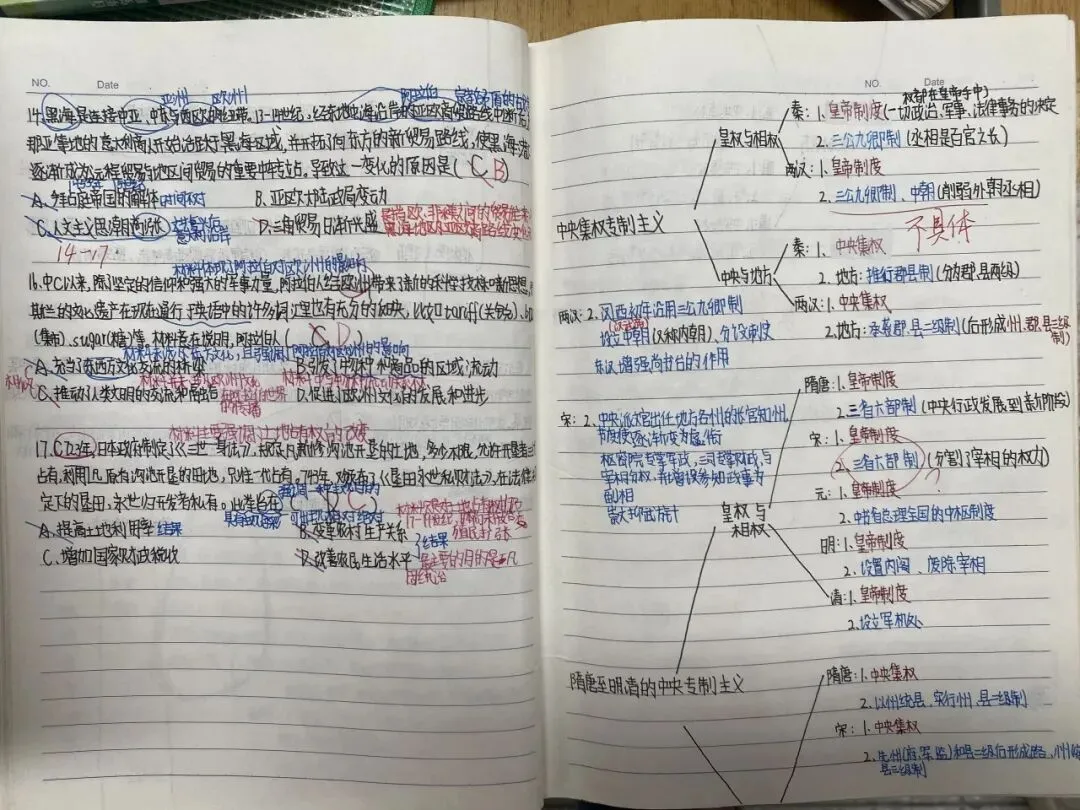 NO. Date
亚洲 欧洲
14.黑海是连接中亚、中东与西欧的纽带。13-14世纪,经东地中海沿岸的亚欧商贸路线中断后,
那亚等地的意大利商人开始活跃于黑海区域,并开拓了向东方的新贸易路线,使黑海
逐渐成为远程贸易与地区间贸易的重要中转站。导致这一变化的原因是( C B )
A. 帝国的解体 时间不对 B.亚欧大陆政局变动
C.人文主义思潮的扩张 D.三角贸易日渐兴盛
14-17
材料体现了阿拉伯对欧洲的影响
16.中C以来,除了坚定的信仰和强大的军事力量,阿拉伯人给欧洲带来了新的科学技术和新思想,
斯兰的文化遗产在现在通行于英语中的许多词汇里也有充分的印映,比如tariff(关税)、
(集市)、sugar(糖)等。材料意在说明,阿拉伯人( C D )
A.充当了东西方文化交流的桥梁 B.引发了物种和商品的区域流动
C.推动人类文明的交流和融合 D.促进了欧洲文化的发展和进步
材料主要强调土地占有权的改变
17.723年,日本政府制定《三世一身法》,规定凡新修沟池开垦的土地,多少不限,允许开垦者三
占有,利用旧有沟池开垦的田地,只准一代占有。743年,又颁布了《垦田永世私财法》,在法律
定下的垦田,永世归开发者私有。此举旨在( B C )
A.提高土地利用率 结果 B.变革农村生产关系
C.增加国家财政税收 D.改善农民生活水平
结果
NO. Date
权都在皇帝手中
秦:1.皇帝制度(一切政治、军事、法律事务的决定
皇权与相权
2.三公九卿制(丞相是百官之长)
两汉:1.皇帝制度
2.三公九卿制、中朝(削弱外朝丞相)
中央集权专制主义
不具体
秦:1.中央集权
中央与地方
2.地方:推行郡县制(分为郡县两级)
两汉:1.中央集权
2.地方:承袭郡、县二级制(后形成州、郡、县三级制)
两汉:2.西初年沿用三公九卿制
(汉武帝)
设立中朝(又称内朝)、分设刺史
东汉增强尚书台的作用
隋唐:1.皇帝制度
2.三省六部制(中央行政发展到新阶段)
宋:2.中央派文官出任地方各州的长官知州,
节度使逐渐沦为虚衔
枢密院专掌军政,三司专掌财政,与
宰相分权,并增设参知政事为
副相
崇文抑武方针
宋:1.皇帝制度
2.三省六部制(分割了宰相的权力)
?
元:1.皇帝制度
2.中书省总理全国的中枢制度
皇权与
相权
明:1.皇帝制度
2.设置内阁、废除宰相
清:1.皇帝制度
2.设立军机处
隋唐至明清的中央专制主义
隋唐:1.中央集权
2.以州统县、实行州、县二级制
宋:1.中央集权
2.先州(府、军、监)和县二级后形成路、州
县三级制